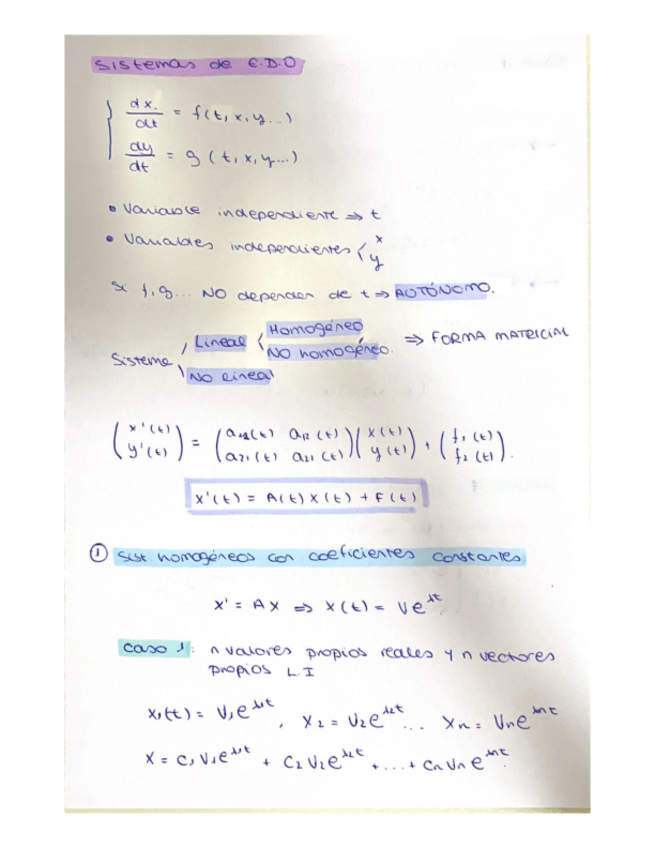 Sistemas de E.D.O
dx/dt = f(t, x, y...)
dy/dt = g(t, x, y...)
• Variable independiente ⇒ t
• Variables independientes < x y
Si f, g... NO dependen de t ⇒ AUTÓNOMO.
Sistema / Lineal < Homogéneo
NO homogéneo. ⇒ FORMA MATRICIAL
\ NO lineal
(x'(t) y'(t)) = (a11(t) a12(t) a21(t) a21(t)) (x(t) y(t)) + (f1(t) f2(t)).
x'(t) = A(t)X(t) + F(t)
① Sist homogéneos con coeficientes constantes
X' = AX ⇒ X(t) = Ve^λt
Caso 1: n valores propios reales y n vectores
propios L.I
X1(t) = V1e^λ1t, X2 = V2e^λ2t ... Xn = Vne^λnt
X = C1V1e^λ1t + C2V2e^λ2t + ... + CnVne^λnt.